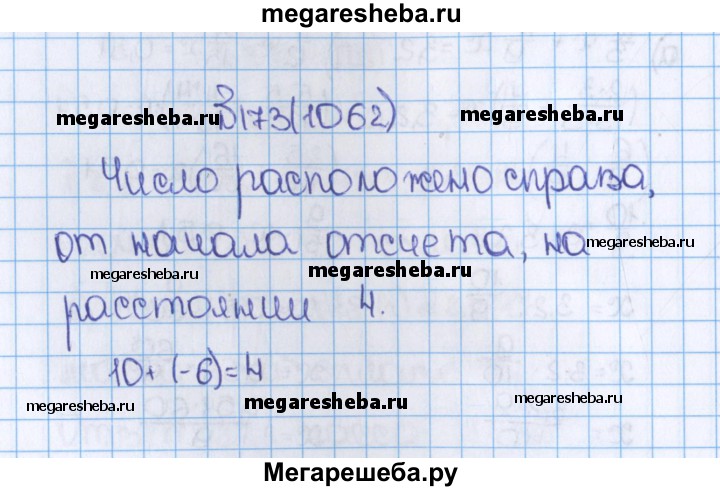 megaresheba.ru
173(1062)
megaresheba.ru megaresheba.ru
Число расположено справа,
от начала отсчета, на
megaresheba.ru
megaresheba.ru megaresheba.ru
расстоянии 4.
10+(-6)=4
megaresheba.ru megaresheba.ru megaresheba.ru
Мегарешеба.ру